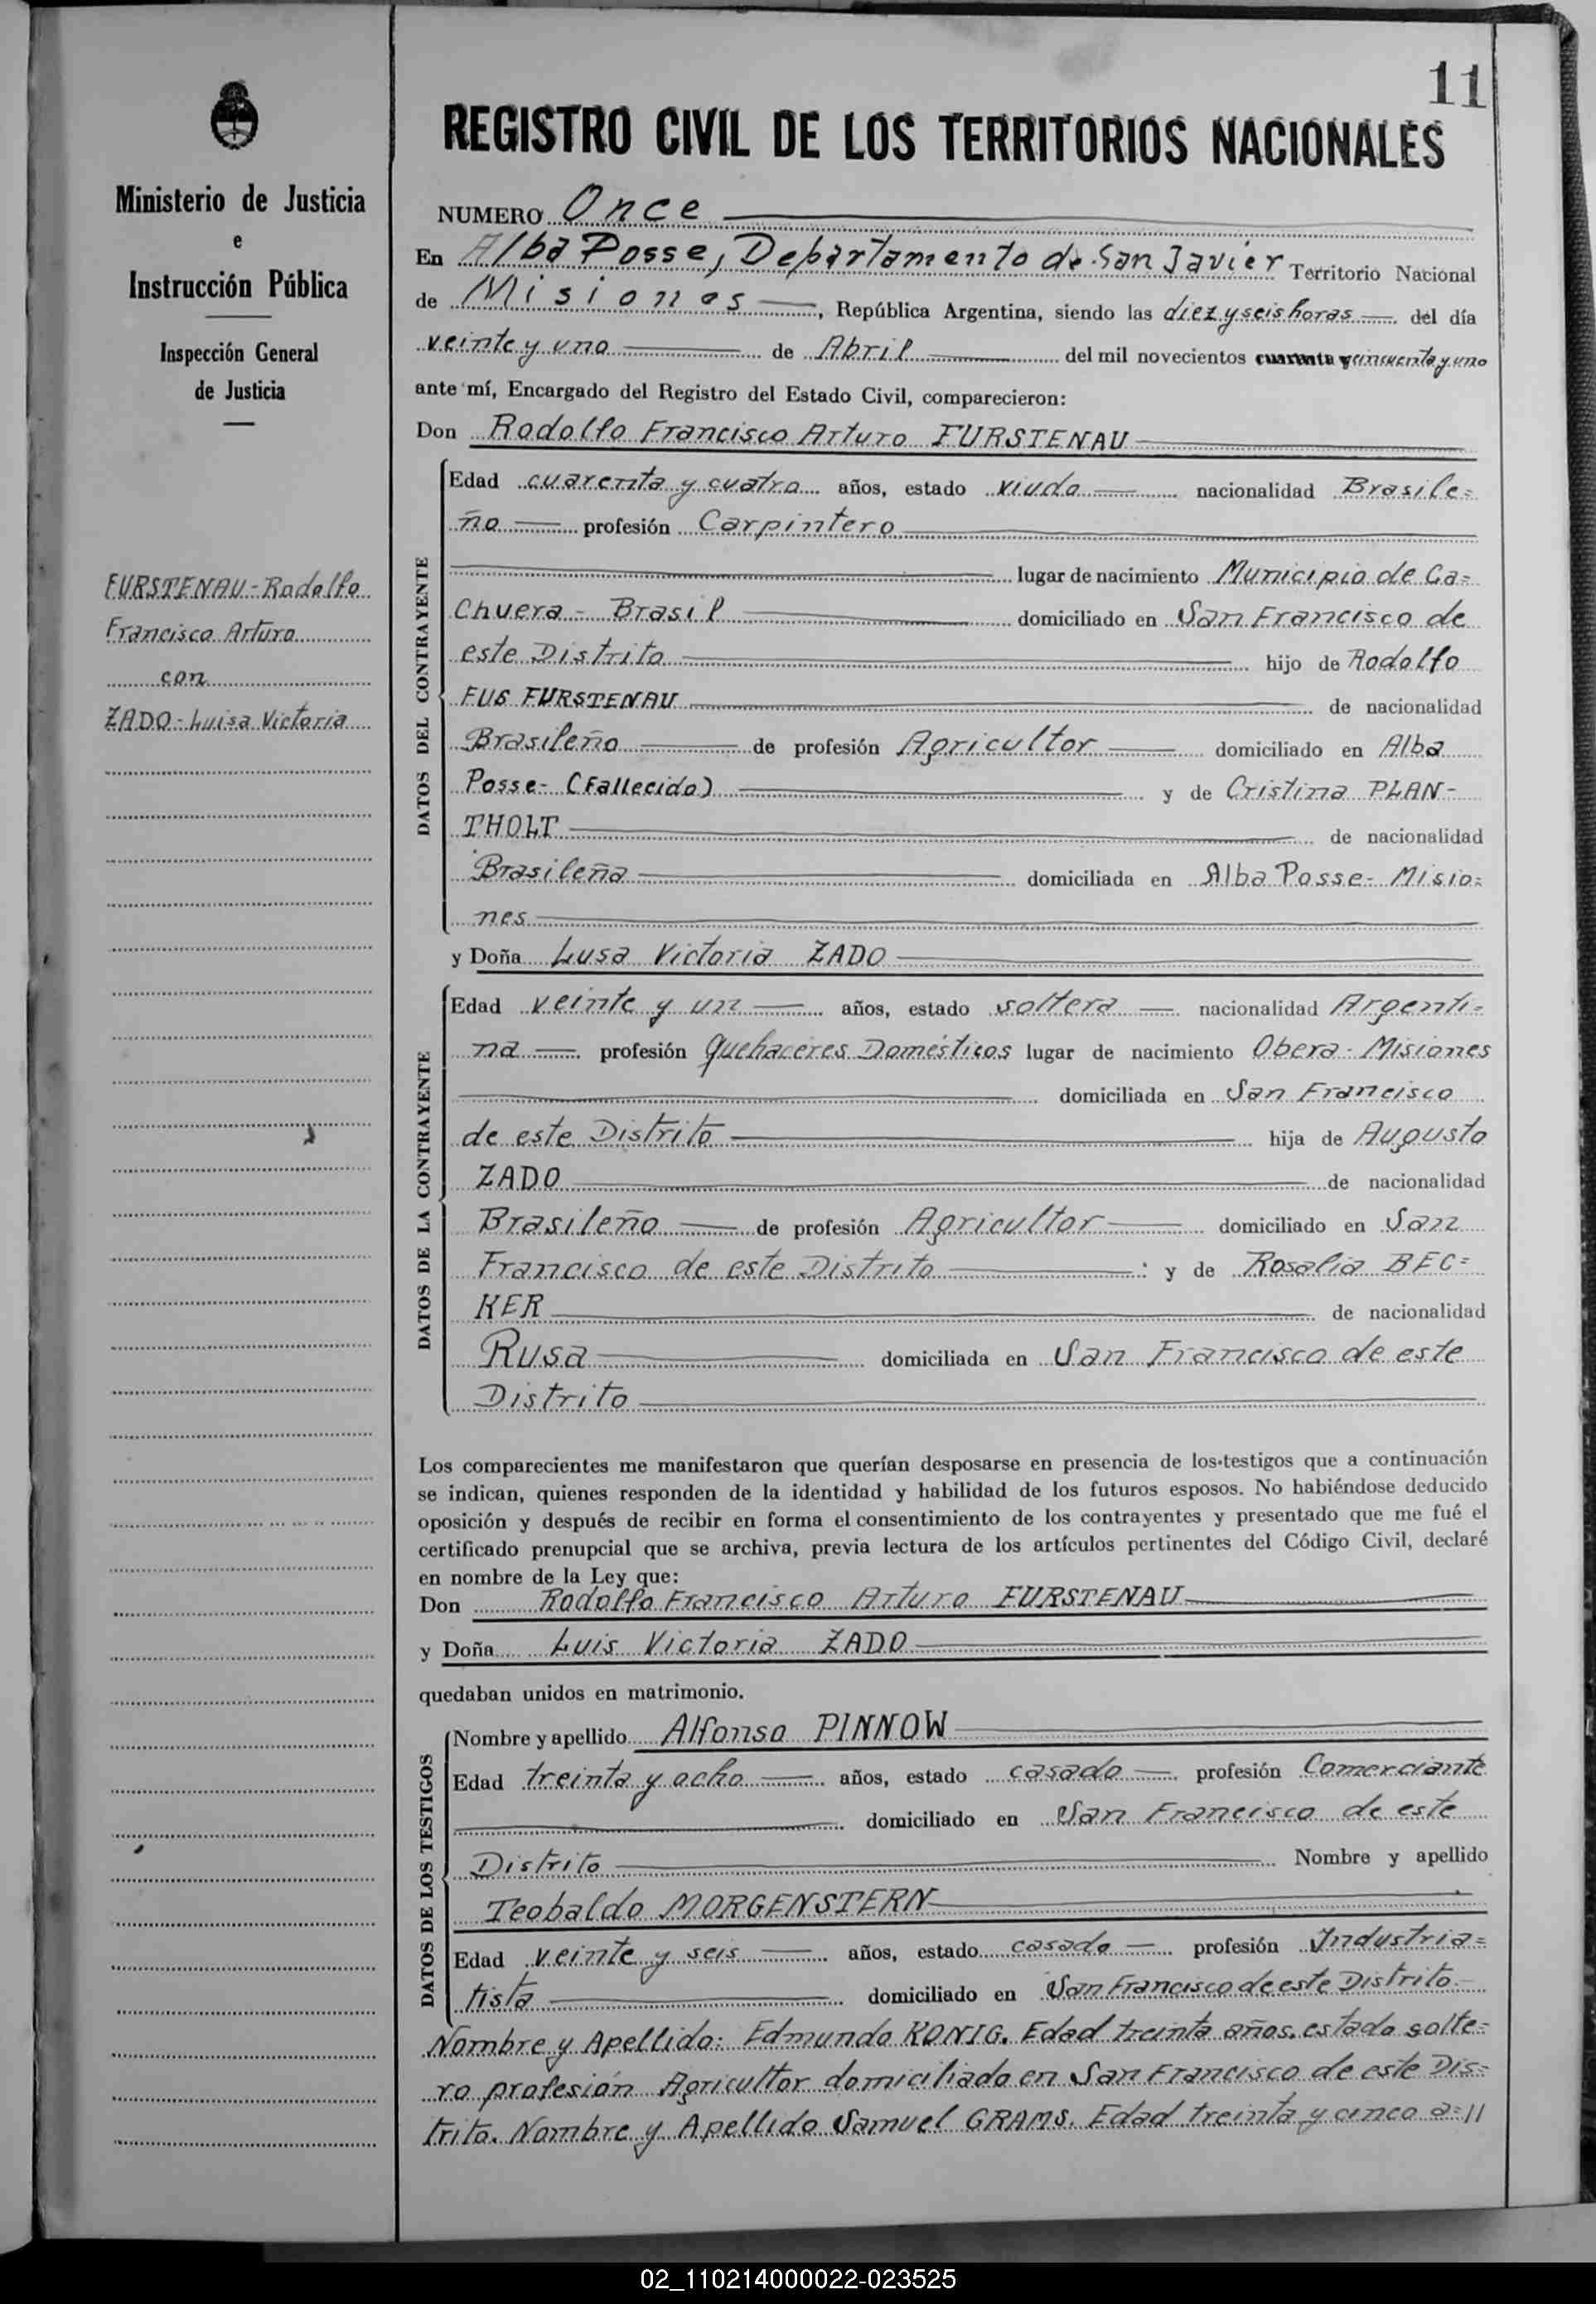 11
Ministerio de Justicia
e
Instrucción Pública
Inspección General
de Justicia
FURSTENAU - Rodolfo
Francisco Arturo
con
ZADO - Luisa Victoria
REGISTRO CIVIL DE LOS TERRITORIOS NACIONALES
NUMERO Once
En Alba Posse, Departamento de San Javier Territorio Nacional
de Misiones, República Argentina, siendo las diez y seis horas del día
veinte y uno de Abril del mil novecientos cuarenta y cincuenta y uno
ante mí, Encargado del Registro del Estado Civil, comparecieron:
Don Rodolfo Francisco Arturo FURSTENAU
DATOS DEL CONTRAYENTE
Edad cuarenta y cuatro años, estado viudo nacionalidad Brasile=
ño profesión Carpintero
lugar de nacimiento Municipio de Ca=
chuera - Brasil domiciliado en San Francisco de
este Distrito hijo de Rodolfo
FURSTENAU de nacionalidad
Brasileño de profesión Agricultor domiciliado en Alba
Posse - (Fallecido) y de Cristina PLAN-
THOLT de nacionalidad
Brasileña domiciliada en Alba Posse - Misio=
nes
y Doña Lusa Victoria ZADO
DATOS DE LA CONTRAYENTE
Edad veinte y un años, estado soltera nacionalidad Argenti=
na profesión Quehaceres Domésticos lugar de nacimiento Obera - Misiones
domiciliada en San Francisco
de este Distrito hija de Augusto
ZADO de nacionalidad
Brasileño de profesión Agricultor domiciliado en San
Francisco de este Distrito y de Rosalia BEC=
KER de nacionalidad
Rusa domiciliada en San Francisco de este
Distrito
Los comparecientes me manifestaron que querían desposarse en presencia de los testigos que a continuación
se indican, quienes responden de la identidad y habilidad de los futuros esposos. No habiéndose deducido
oposición y después de recibir en forma el consentimiento de los contrayentes y presentado que me fué el
certificado prenupcial que se archiva, previa lectura de los artículos pertinentes del Código Civil, declaré
en nombre de la Ley que:
Don Rodolfo Francisco Arturo FURSTENAU
y Doña Luis Victoria ZADO
quedaban unidos en matrimonio.
DATOS DE LOS TESTIGOS
Nombre y apellido Alfonso PINNOW
Edad treinta y ocho años, estado casado profesión Comerciante
domiciliado en San Francisco de este
Distrito Nombre y apellido
Teobaldo MORGENSTERN
Edad veinte y seis años, estado casado profesión Industria=
tista domiciliado en San Francisco de este Distrito.
Nombre y Apellido: Edmundo KONIG. Edad treinta años. estado solte=
ro profesión Agricultor domiciliado en San Francisco de este Dis=
trito. Nombre y Apellido Samuel GRAMS. Edad treinta y cinco a=//
02_110214000022-023525